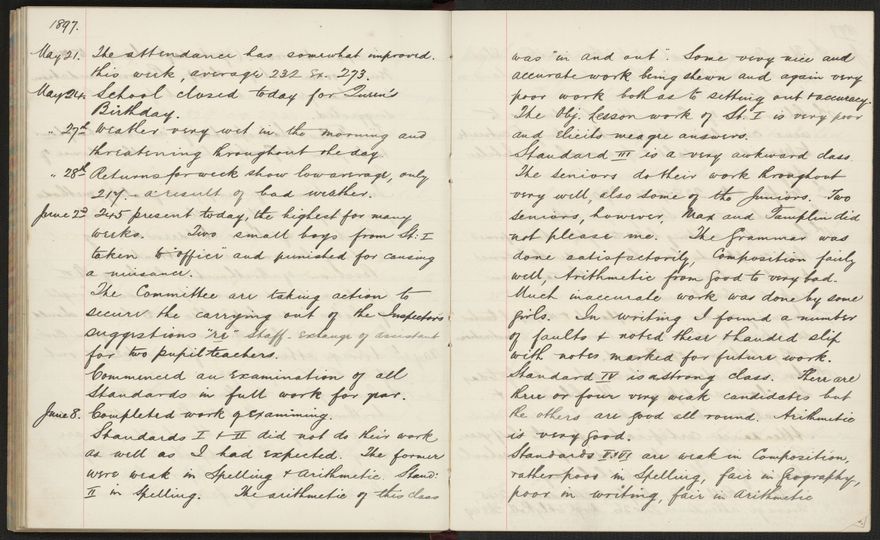 1897.
May 21. The attendance has somewhat improved.
this week, average 232 ex. 273.
May 24. School closed today for Queen's
Birthday.
" 27th Weather very wet in the morning and
threatening throughout the day
" 28th Returns for week show low average, only
217. a result of bad weather.
June 2nd 245 present today, the highest for many
weeks. Two small boys from St: I
taken to "office" and punished for causing
a nuisance.
The Committee are taking action to
secure the carrying out of the Inspectors
suggestions "re" staff. exchange of assistant
for two pupil-teachers.
Commenced an Examination of all
Standards in full work for year.
June 8. Completed work of examining.
Standards I & II did not do their work
as well as I had expected. The former
were weak in Spelling & arithmetic Stand:
II in Spelling. The arithmetic of this class
was "in and out". Some very nice and
accurate work being shewn and again very
poor work both as to setting out & accuracy.
The Obj. Lesson work of St. I is very poor
and elicits meagre answers.
Standard III is a very awkward class.
The seniors do their work throughout
very well, also some of the Juniors. Two
seniors, however, Max and Tamplin did
not please me. The Grammar was
done satisfactorily, Composition fairly
well, Arithmetic from good to very bad.
Much inaccurate work was done by some
girls. In writing I found a number
of faults & noted these & handed slip
with notes marked for future work.
Standard IV is a strong class. There are
three or four very weak candidates but
the others are good all round. Arithmetic
is very good.
Standards V & VI are weak in Composition,
rather poor in Spelling, fair in Geography,
poor in writing, fair in arithmetic